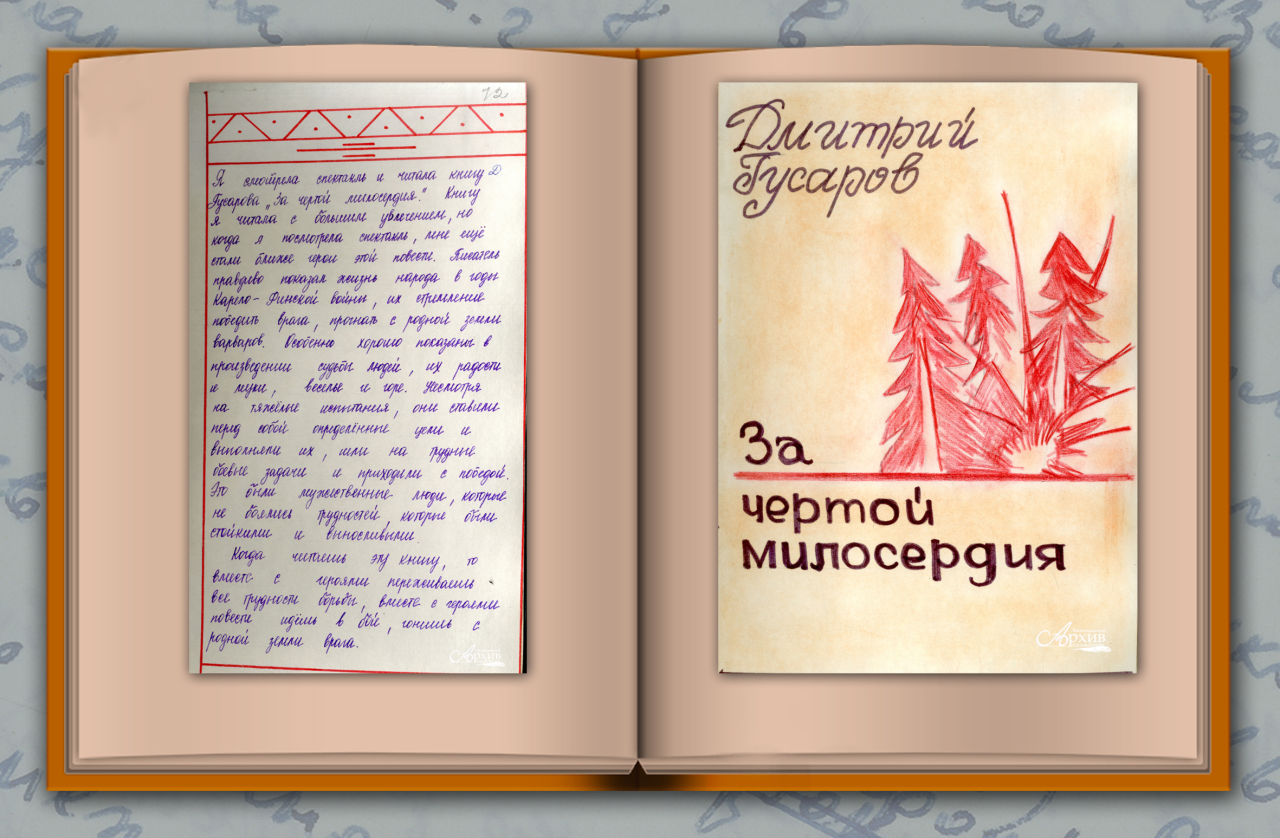 12
Я смотрела спектакль и читала книгу Д
Гусарова „За чертой милосердия". Книгу
я читала с большим увлечением, но
когда я посмотрела спектакль, мне ещё
стали ближе герои этой повести. Писатель
правдиво показал жизнь народа в годы
Карело-Финской войны, их стремление
победить врага, прогнать с родной земли
варваров. Особенно хорошо показаны в
произведении судьбы людей, их радости
и муки, веселье и горе. Несмотря
на тяжёлые испытания, они ставили
перед собой определённые цели и
выполняли их, шли на трудные
боевые задачи и приходили с победой.
Это были мужественные люди, которые
не боялись трудностей, которые были
стойкими и выносливыми.
Когда читаешь эту книгу, то
вместе с героями переживаешь
все трудности борьбы, вместе с героями
повести идёшь в бой, гонишь с
родной земли врага.
Архив
Дмитрий
Гусаров
За
чертой
милосердия
Архив